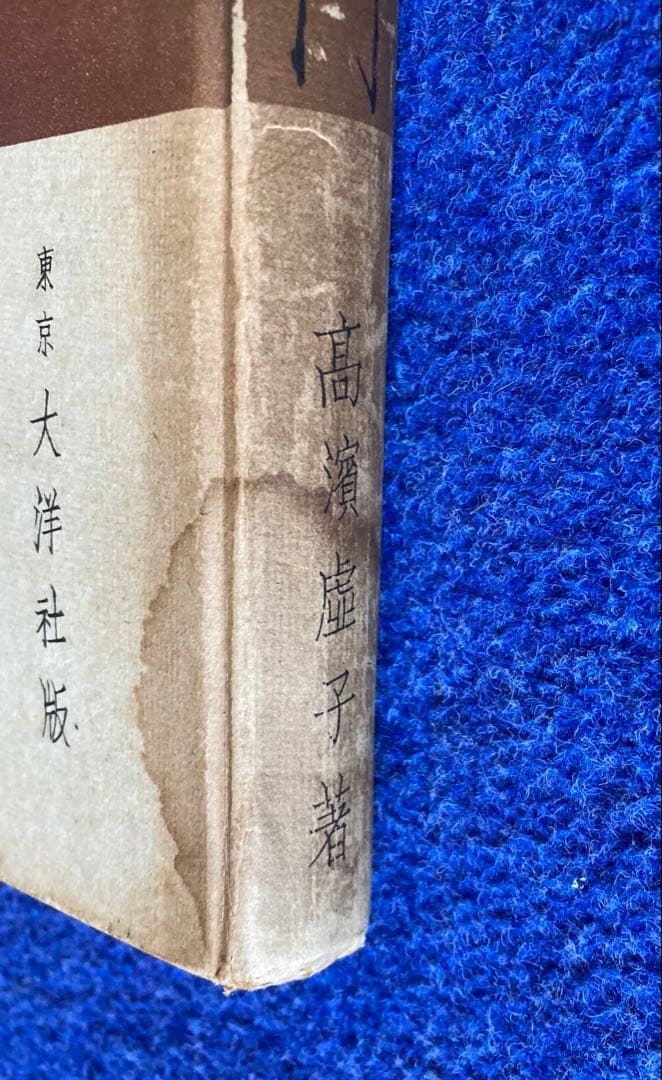 高濱虛子著
東京 大洋社版